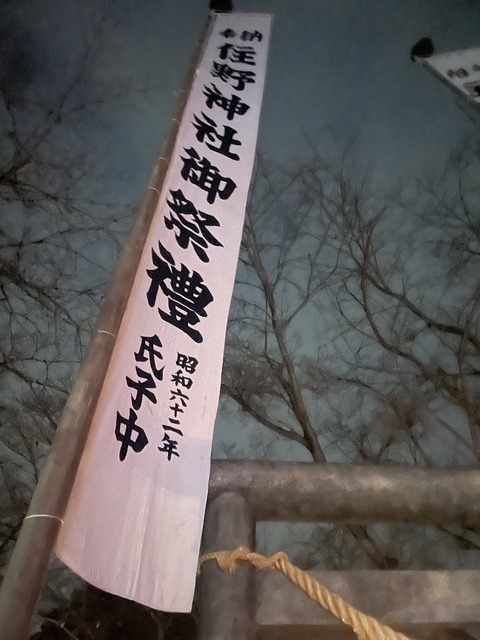 奉納
住野神社御祭禮
昭和六十二年
氏子中